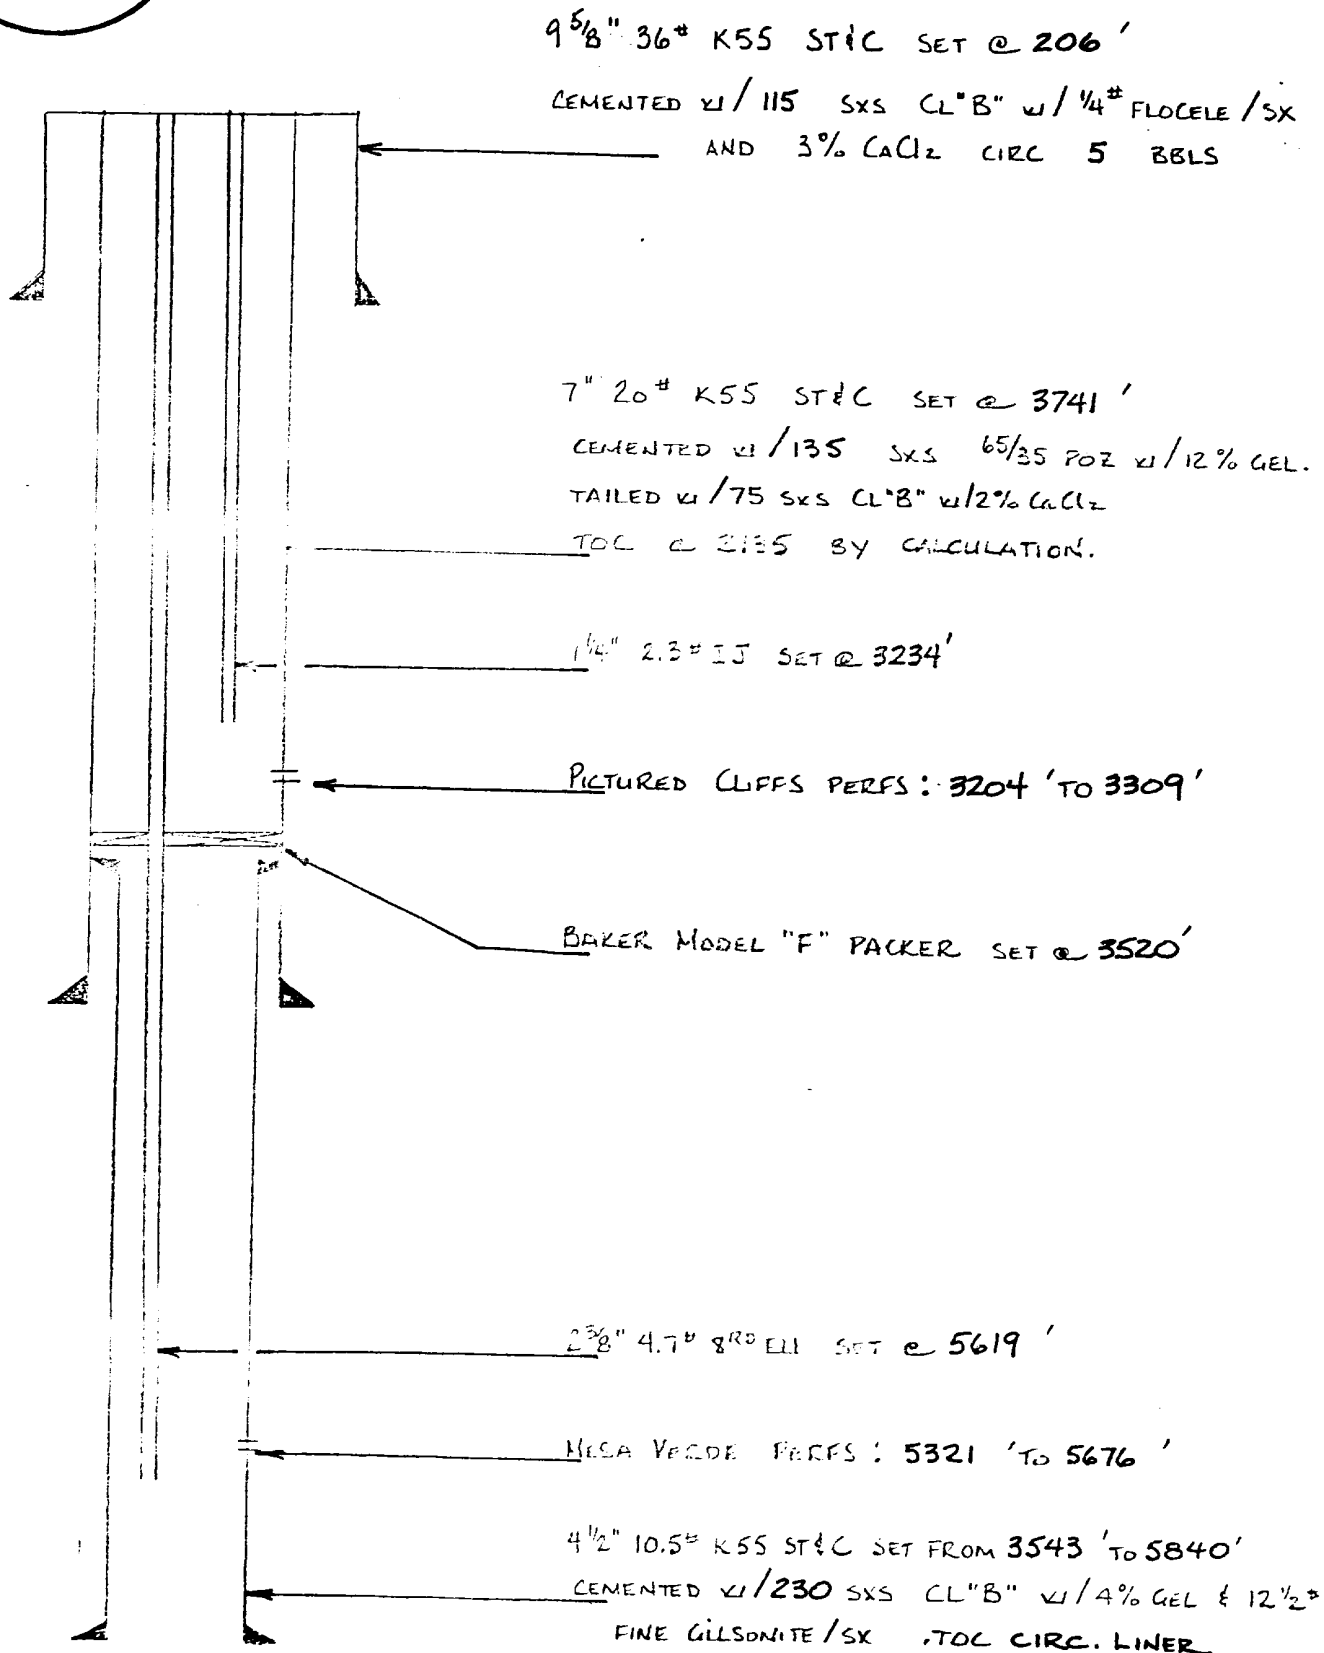 9 5/8" 36# K55 ST&C SET @ 206'
CEMENTED w/ 115 SXS CL"B" w/ 1/4# FLOCELE /SX
AND 3% CaCl2 CIRC 5 BBLS
7" 20# K55 ST&C SET @ 3741'
CEMENTED w/135 SXS 65/35 POZ w/12% GEL.
TAILED w/75 SXS CL"B" w/2% CaCl2
TOC @ BY CALCULATION.
1 1/4" 2.3# IJ SET @ 3234'
PICTURED CLIFFS PERFS: 3204' TO 3309'
BAKER MODEL "F" PACKER SET @ 3520'
2 3/8" 4.7# 8RD SET @ 5619'
MESA VERDE PERFS: 5321' TO 5676'
4 1/2" 10.5# K55 ST&C SET FROM 3543' TO 5840'
CEMENTED w/230 SXS CL"B" w/4% GEL & 12 1/2#
FINE GILSONITE/SX .TOC CIRC. LINER